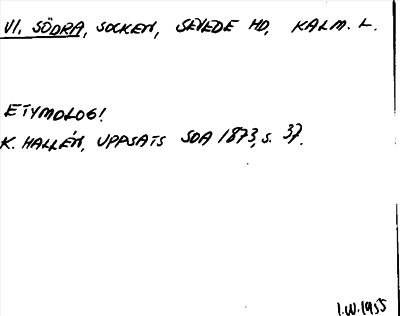 VI. SÖDRA, SOCKEN, SEVEDE HD, KALM. L.
ETYMOLOGI
K. HALLÉN, UPPSATS SOA 1873, s. 37.
I.W.1955